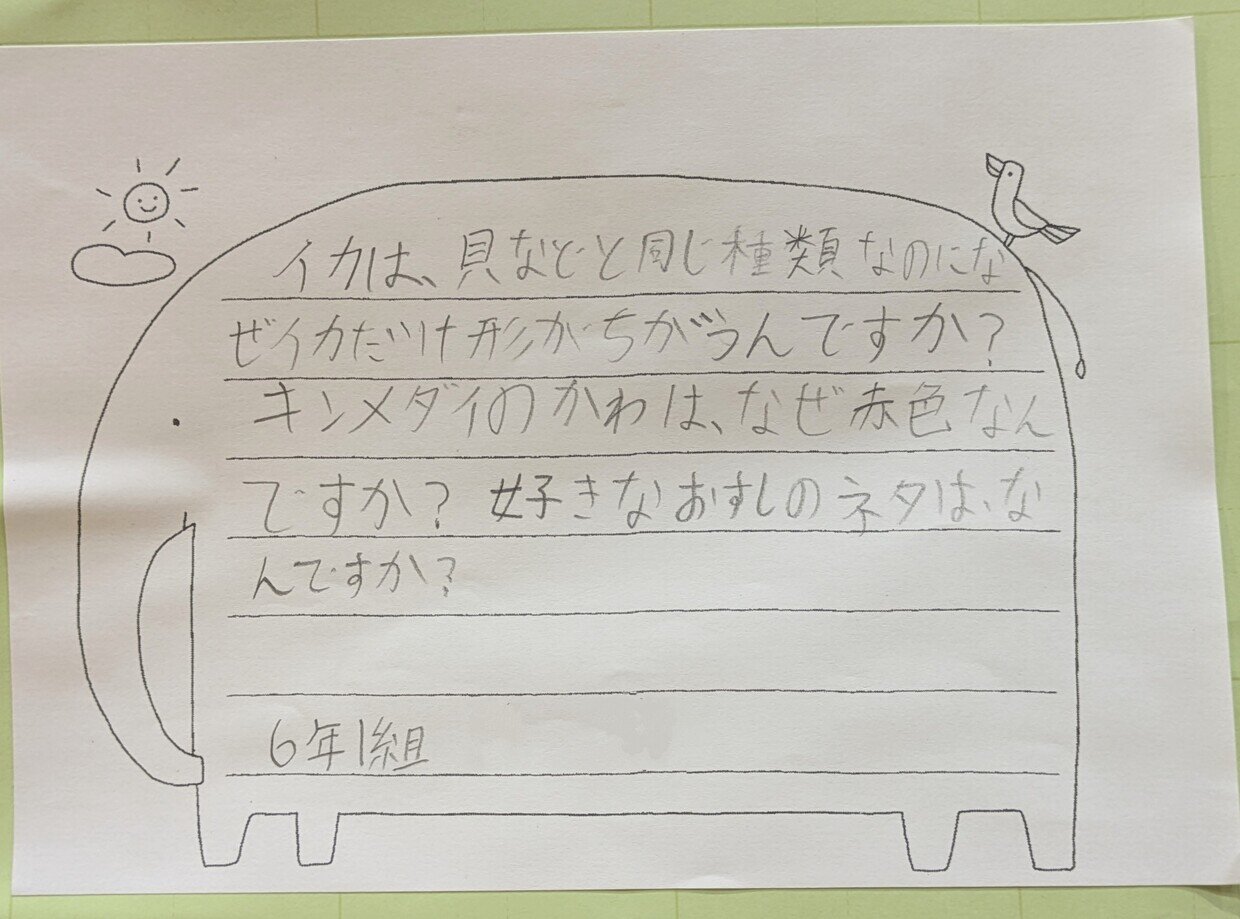 イカは、貝などと同じ種類なのにな
ぜイカだけ形がちがうんですか?
キンメダイのかわは、なぜ赤色なん
ですか? 好きなおすしのネタは、な
んですか?
6年1組